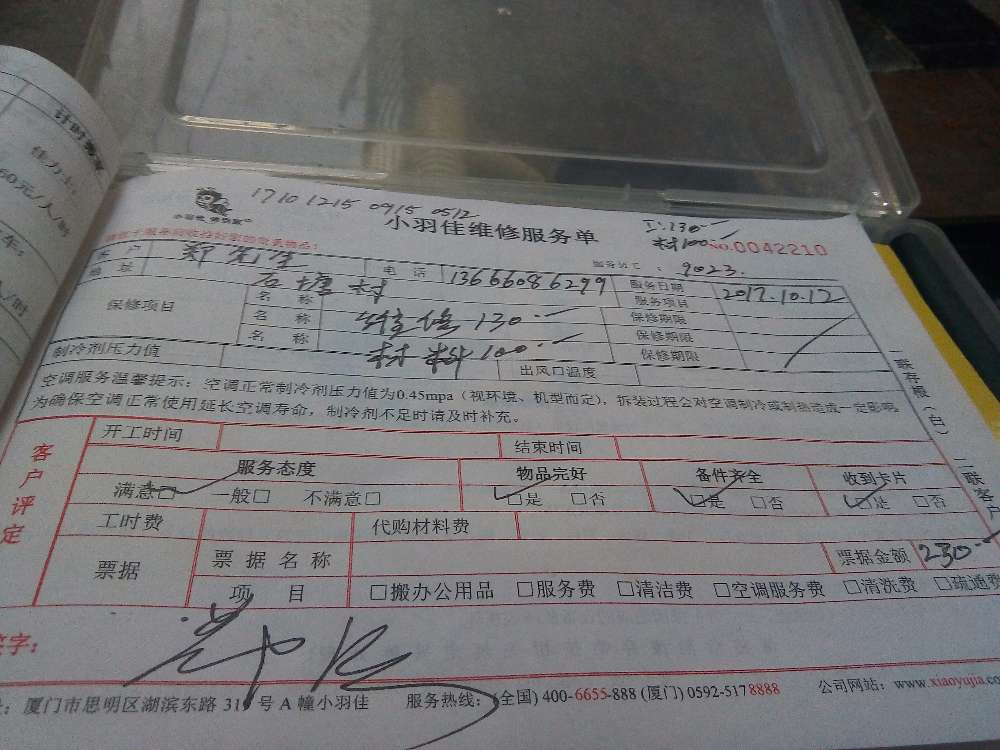 1710 1215 0915 0512
工:130.—
材100
小羽佳维修服务单 NO.0042210
9023.
客户 郑先生 电话 13666086299 服务日期 2017.10.12
地址 石塘村 服务项目
保修项目 名称 维修130.— 保修期限
名称 材料100.— 保修期限
名称 保修期限
制冷剂压力值 出风口温度
空调服务温馨提示:空调正常制冷剂压力值为0.45mpa(视环境、机型而定),拆装过程会对空调制冷或制热造成一定影响,
为确保空调正常使用延长空调寿命,制冷剂不足时请及时补充。
客户评定
开工时间 结束时间
服务态度 物品完好 备件齐全 收到卡片
满意□ 一般□ 不满意□ □是 □否 □是 □否 □是 □否
工时费 代购材料费
票据 票据名称 票据金额 230.—
项目 □搬办公用品 □服务费 □清洁费 □空调服务费 □清洗费 □疏通费
签字:
厦门市思明区湖滨东路 319 号 A 幢小羽佳 服务热线:(全国) 400-6655-888 (厦门) 0592-5178888 公司网站:www.xiaoyujia.co
联存根(白) 二联客户
计时
60元/人/时